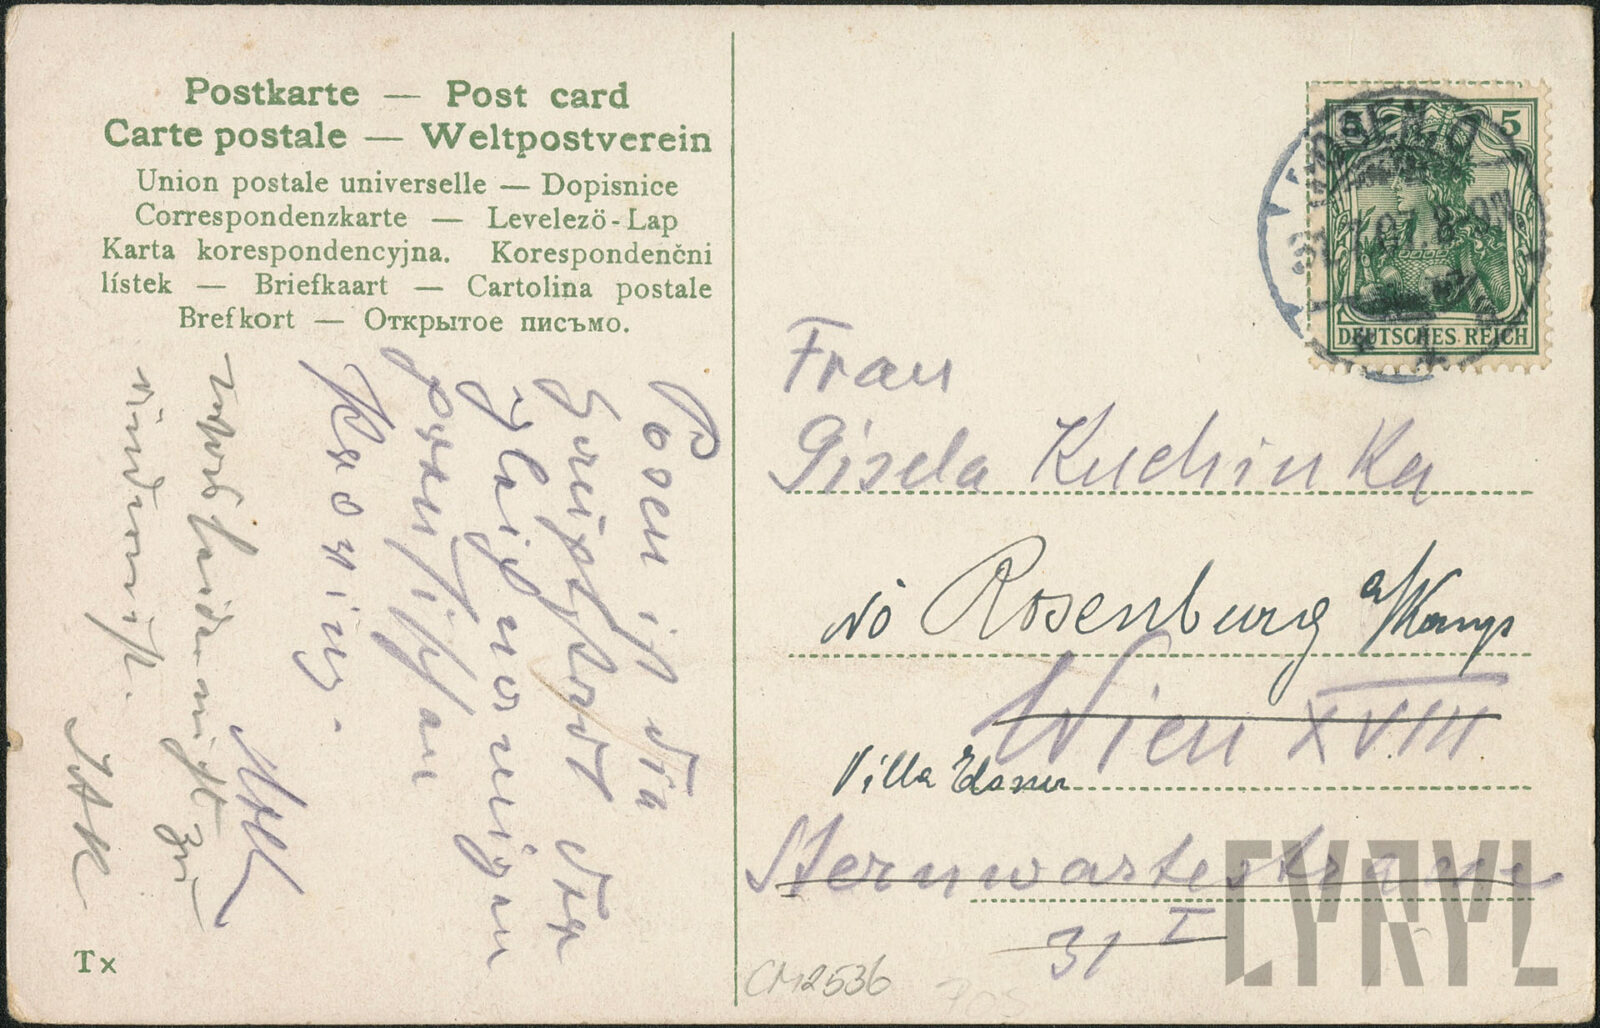 Postkarte — Post card
Carte postale — Weltpostverein
Union postale universelle — Dopisnice
Correspondenzkarte — Levelező-Lap
Karta korespondencyjna. Korespondenčni
lístek — Briefkaart — Cartolina postale
Brefkort — Открытое письмо.
Posen ist die
Hauptstadt der
gleichnamigen
preussischen
Provinz.
Tx
5 5
07.8-9N
DEUTSCHES REICH
Frau
Gisela Kuchinka
NÖ Rosenburg a/Kamp
Wien XVIII
Villa
Sternwartestrasse
31 I
CM2536
CYRYL